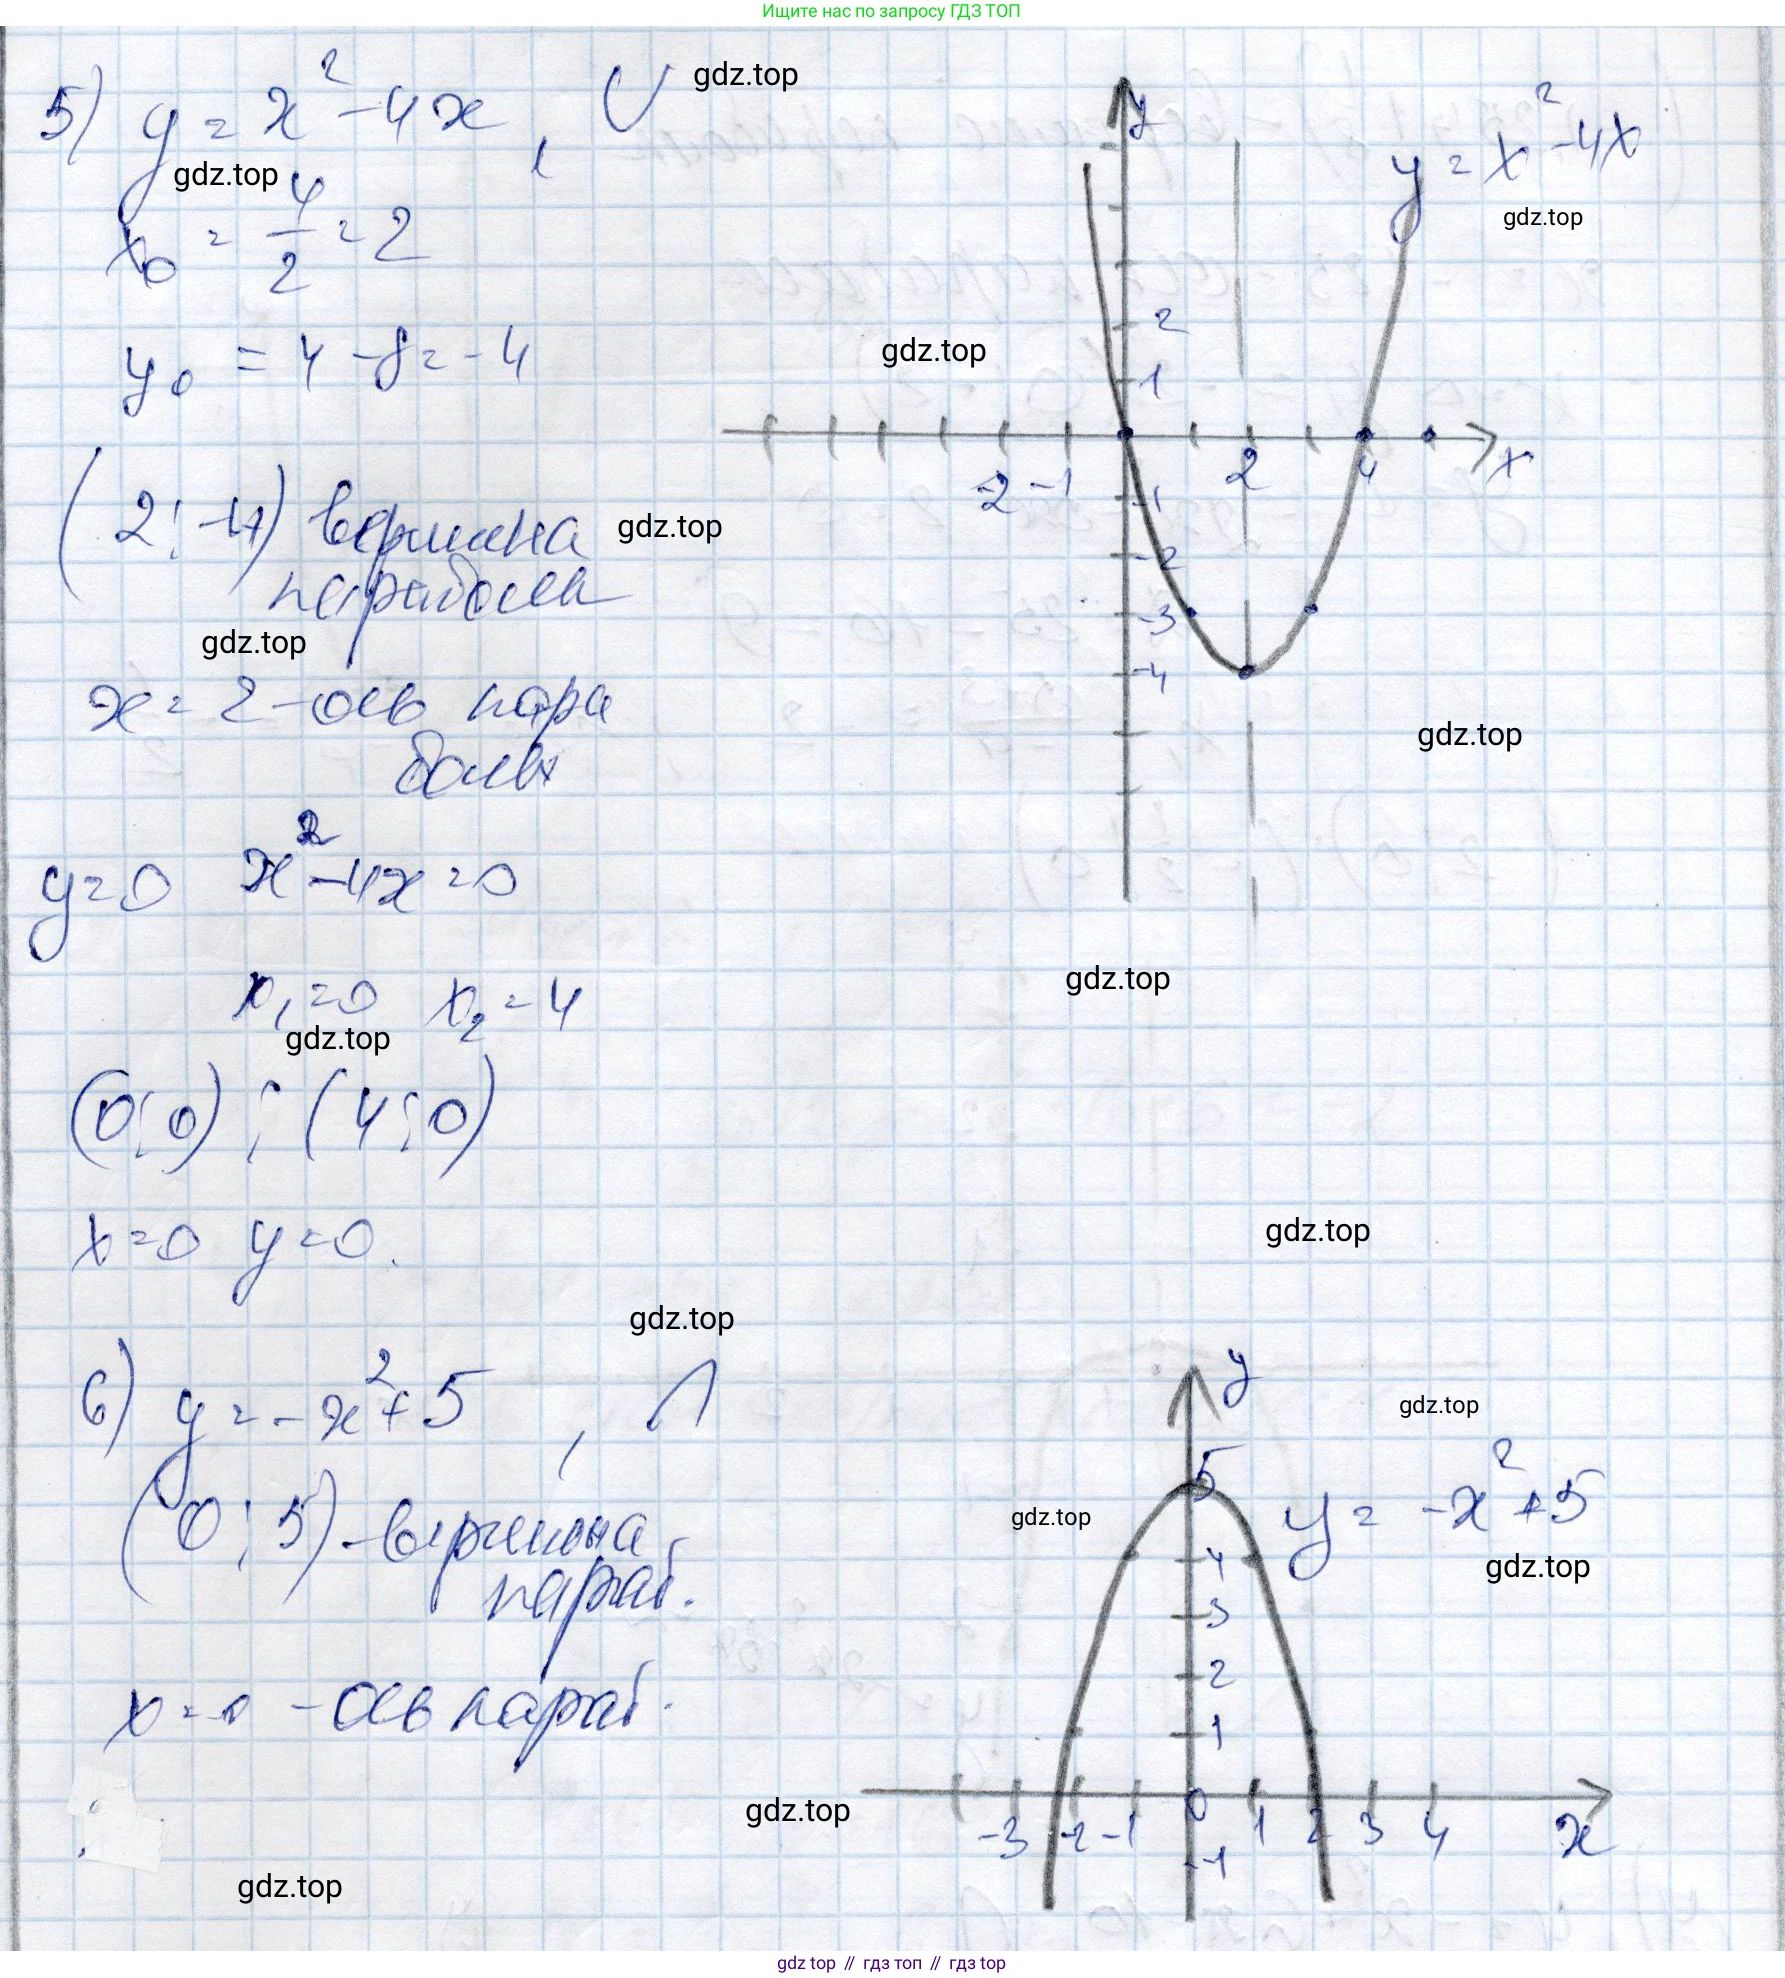 Ищите нас по запросу ГДЗ ТОП
5) y = x² - 4x , ∪
gdz.top
gdz.top
x₀ = 4/2 = 2
y₀ = 4 - 8 = -4
(2; -4) вершина
параболы
gdz.top
gdz.top
x = 2 - ось пара
болы
y = 0 x² - 4x = 0
x₁ = 0 x₂ = 4
gdz.top
(0; 0) ; (4; 0)
x = 0 y = 0.
y
y = x² - 4x
gdz.top
gdz.top
2
1
-2 -1 2 4 x
-1
-2
-3
-4
gdz.top
gdz.top
gdz.top
gdz.top
6) y = -x² + 5 , ∩
(0; 5) - вершина
параб.
x = 0 - ось параб.
gdz.top
gdz.top
y
gdz.top
5
y = -x² + 5
gdz.top
gdz.top
4
3
2
1
-3 -2 -1 0 1 2 3 4 x
-1
gdz.top // гдз топ // гдз top